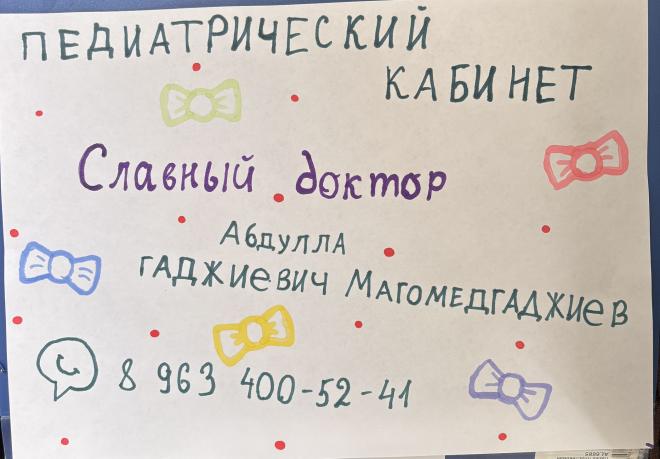 ПЕДИАТРИЧЕСКИЙ
КАБИНЕТ
Славный доктор
Абдулла
ГАДЖИЕВИЧ МАГОМЕДГАДЖИЕВ
8 963 400-52-41